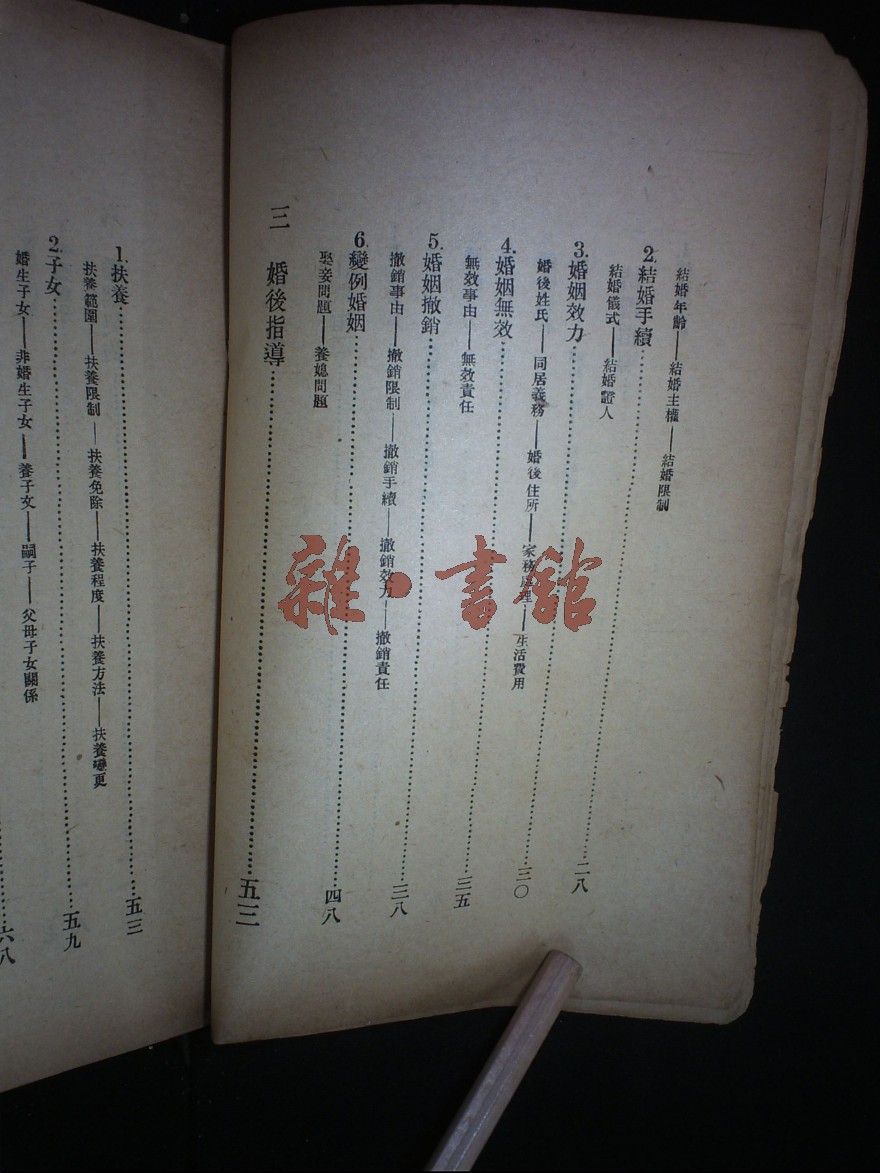 結婚年齡——結婚主權——結婚限制
2.結婚手續……二八
結婚儀式——結婚證人
3.婚姻效力……三〇
婚後姓氏——同居義務——婚後住所——家務處理——生活費用
4.婚姻無效……三五
無效事由——無效責任
5.婚姻撤銷……三八
撤銷事由——撤銷限制——撤銷手續——撤銷效力——撤銷責任
6.變例婚姻……四八
娶妾問題——養媳問題
三 婚後指導……五三
1.扶養……五三
扶養範圍——扶養限制——扶養免除——扶養程度——扶養方法——扶養變更
2.子女……五九
婚生子女——非婚生子女——養子女——嗣子——父母子女關係
……六八
雜·書館